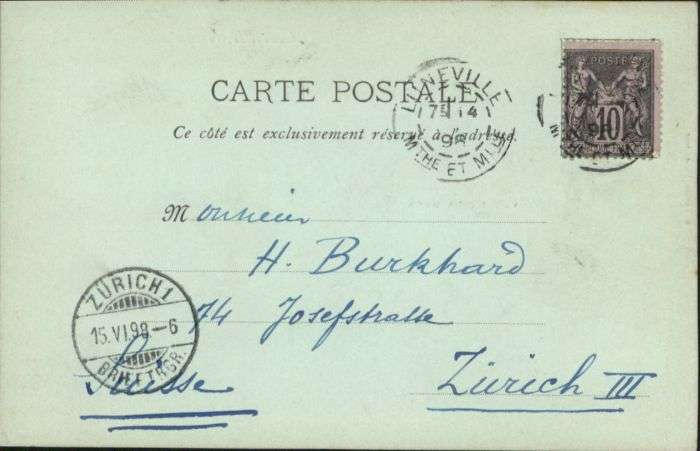 CARTE POSTALE
Ce côté est exclusivement réservé à l'adresse.
LUNEVILLE
14
98
MTHE ET MLLE
POSTE
10
Monsieur
H. Burkhard
74 Josefstrasse
Suisse Zürich III
ZÜRICH 1
15.VI.98.-6
BRIEFTRGR.